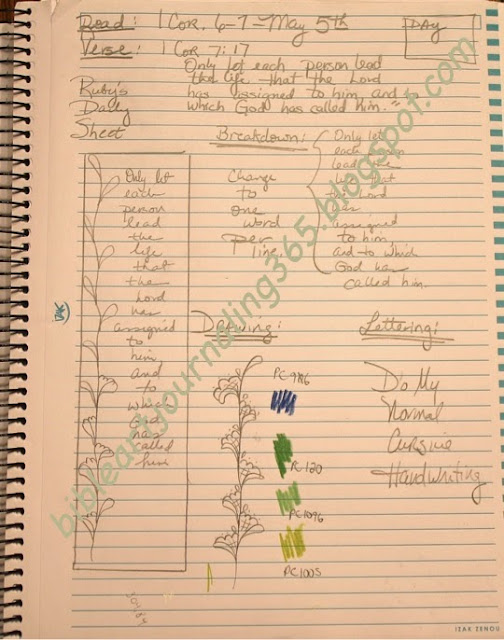 Read: 1 Cor. 6-7-May 5th
DAY
Verse: 1 Cor 7:17
Only let each person lead
the life that the Lord
has assigned to him and to
which God has called him."
Ruby's
Daily
Sheet
Breakdown:
Only let
each
person
lead
the
life
that
the
Lord
has
assigned
to
him
and
to
which
God
has
called
him
Change
to
one
word
per
line.
Only let
each person
lead the
life that
the Lord
has
assigned
to him
and to which
God has
called him.
Drawing:
PC 986
PC 120
PC 1096
PC 1005
Lettering:
Do My
Normal
Cursive
Handwriting
bibleartjournaling365.blogspot.com
IZAK ZENOU